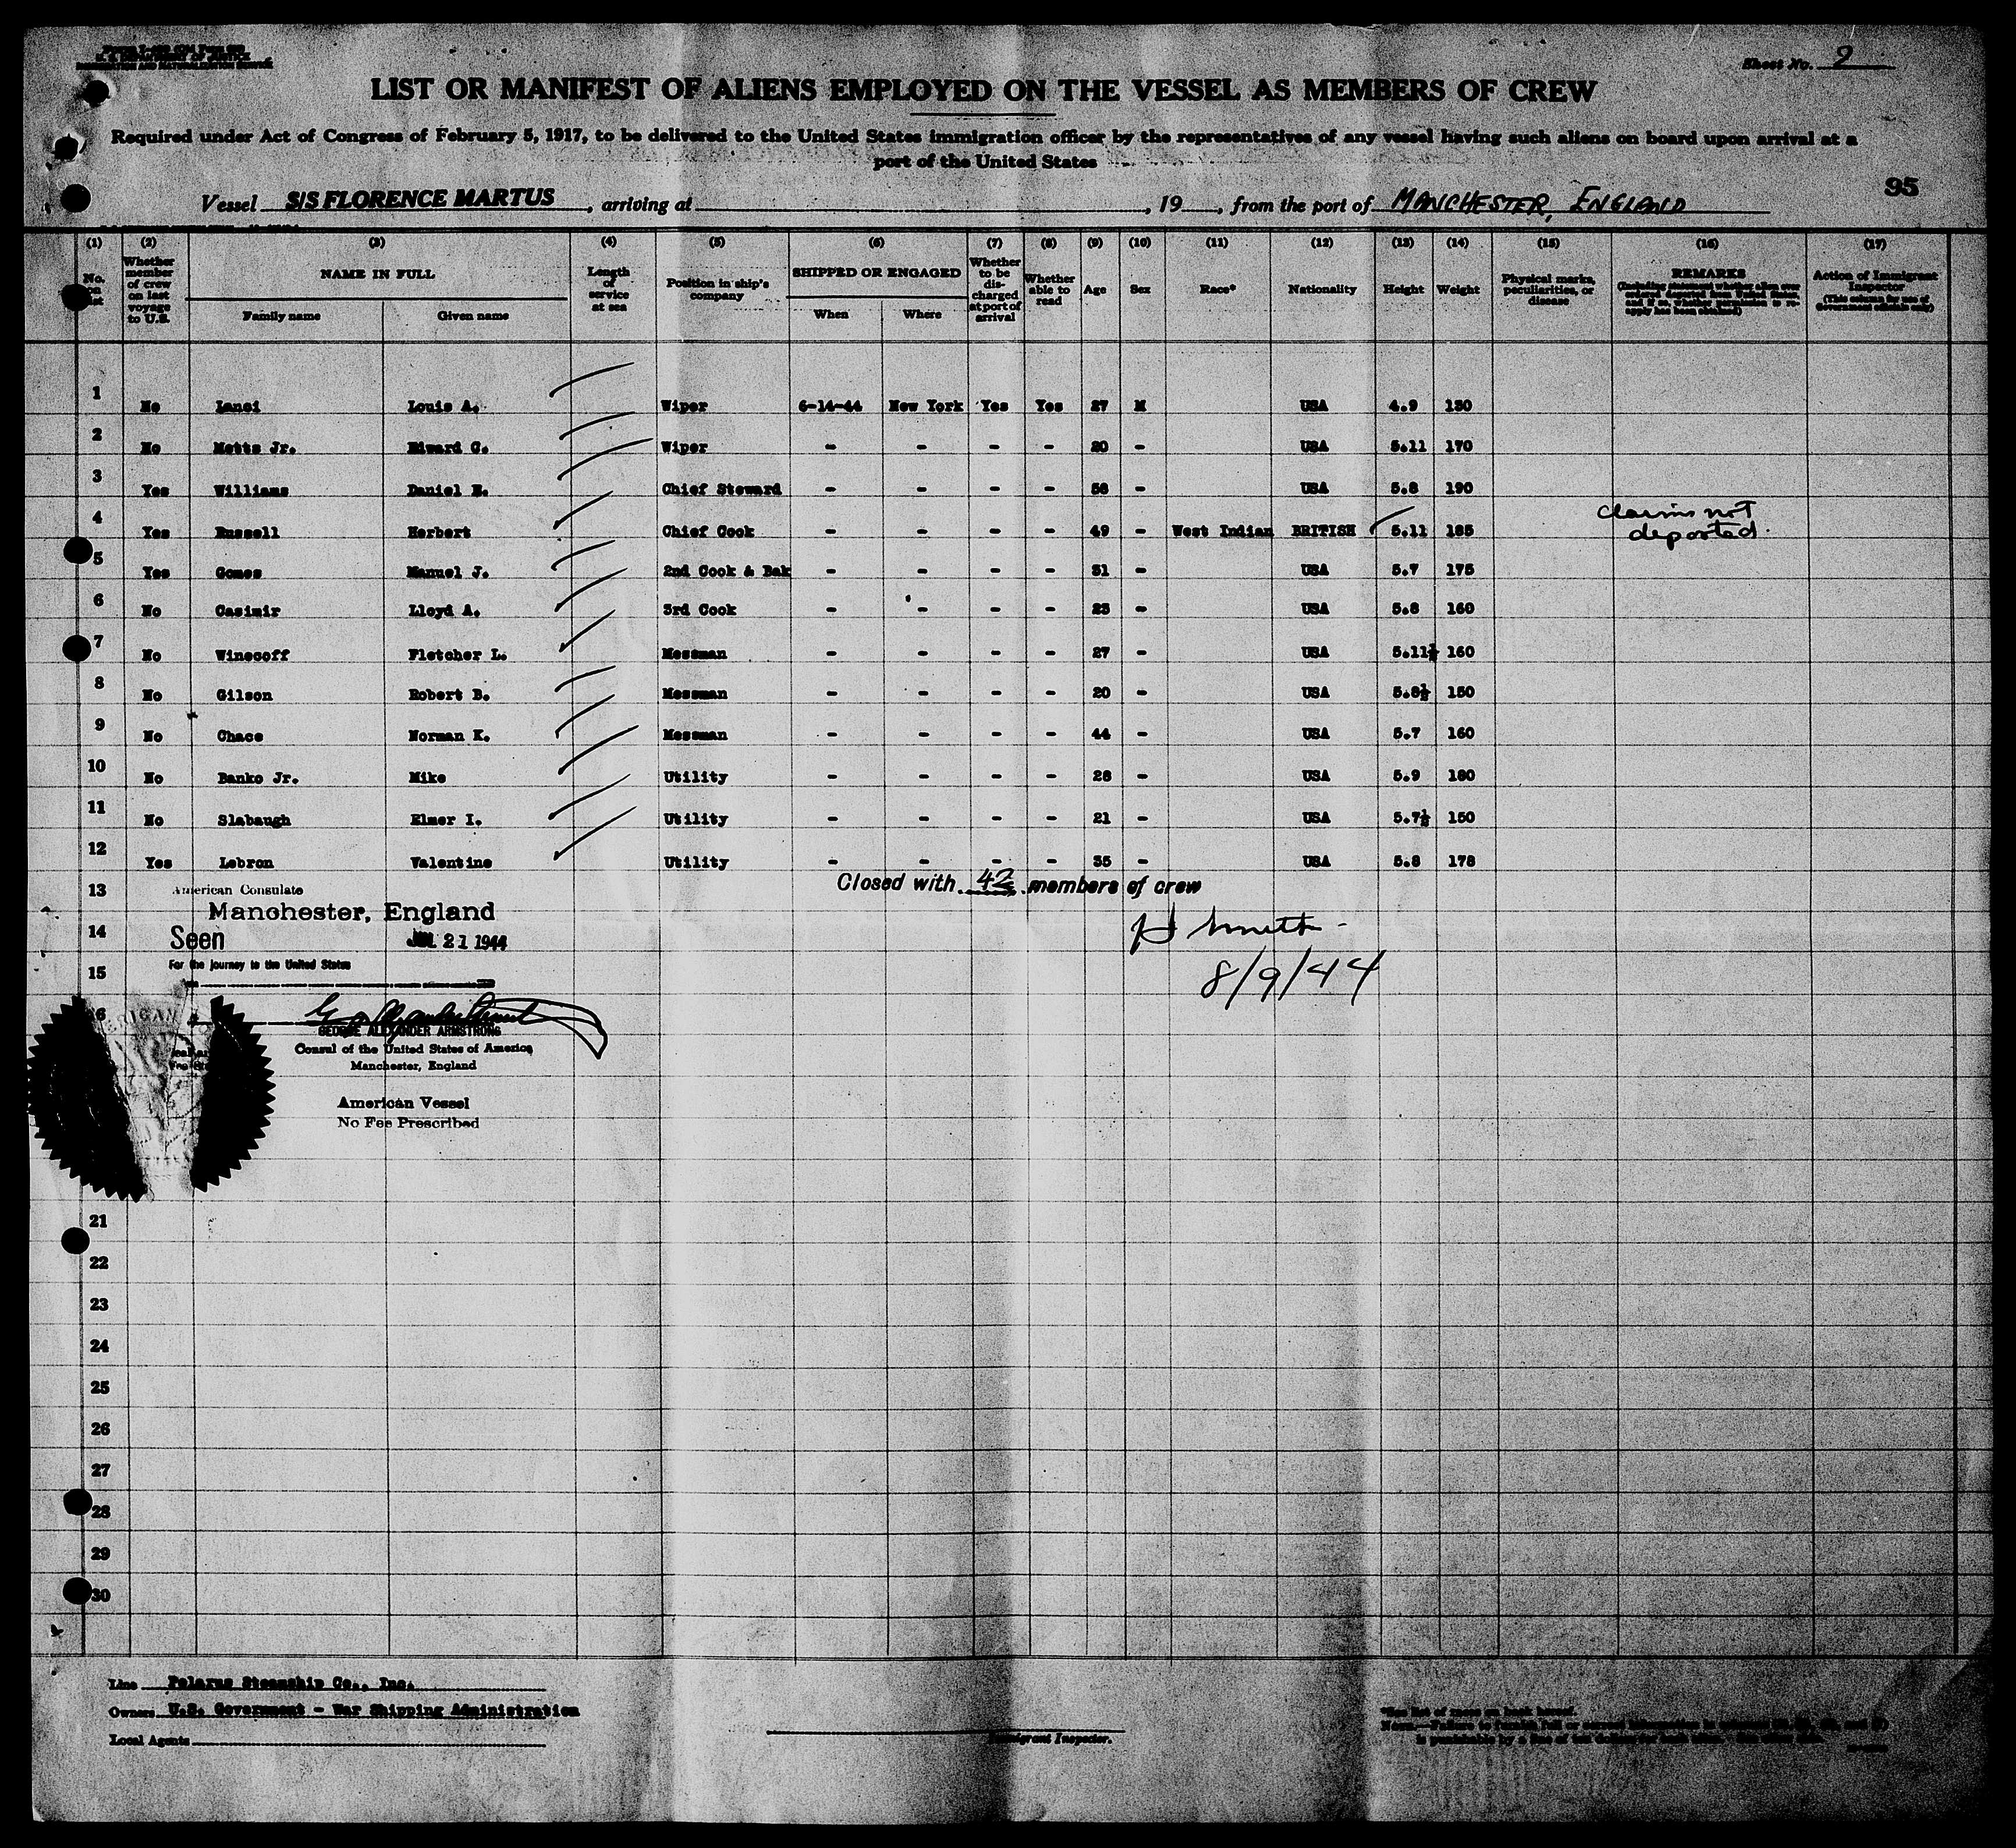 Sheet No. 2
LIST OR MANIFEST OF ALIENS EMPLOYED ON THE VESSEL AS MEMBERS OF CREW
Required under Act of Congress of February 5, 1917, to be delivered to the United States immigration officer by the representatives of any vessel having such aliens on board upon arrival at a
port of the United States
95
Vessel S/S FLORENCE MARTUS, arriving at , 19 , from the port of MANCHESTER, ENGLAND
(1) (2) (3) (4) (5) (6) (7) (8) (9) (10) (11) (12) (13) (14) (15) (16) (17)
No. on list Whether member of crew on last voyage to U.S. NAME IN FULL Family name Given name Length of service at sea Position in ship's company SHIPPED OR ENGAGED When Where Whether to be discharged at port of arrival Whether able to read Age Sex Race* Nationality Height Weight Physical marks, peculiarities, or disease REMARKS Action of Immigrant Inspector
(This column for use of Government officials only)
1 No Lanci Louis A. Wiper 6-14-44 New York Yes Yes 27 M USA 4.9 130
2 No Metts Jr. Edward C. Wiper - - - - 20 - USA 5.11 170
3 Yes Williams Daniel E. Chief Steward - - - - 56 - USA 5.8 190
4 Yes Russell Herbert Chief Cook - - - - 49 - West Indian BRITISH 5.11 185 claims not deported.
5 Yes Gomes Manuel J. 2nd Cook & Bak - - - - 31 - USA 5.7 175
6 No Casimir Lloyd A. 3rd Cook - - - - 23 - USA 5.8 160
7 No Winecoff Fletcher L. Messman - - - - 27 - USA 5.11½ 160
8 No Gilson Robert B. Messman - - - - 20 - USA 5.8½ 150
9 No Chace Norman K. Messman - - - - 44 - USA 5.7 160
10 No Banko Jr. Mike Utility - - - - 28 - USA 5.9 180
11 No Slabaugh Elmer I. Utility - - - - 21 - USA 5.7½ 150
12 Yes Lebron Valentine Utility - - - - 35 - USA 5.8 178
13 American Consulate Closed with 42 members of crew
Manchester, England
14 Seen JUL 21 1944
8/9/44
15 For the journey to the United States
GEORGE ALEXANDER ARMSTRONG
Consul of the United States of America
Manchester, England
American Vessel
No Fee Prescribed
21
22
23
24
25
26
27
28
29
30
Line Polarus Steamship Co., Inc.
Owners U.S. Government - War Shipping Administration
Local Agents
Immigrant Inspector.